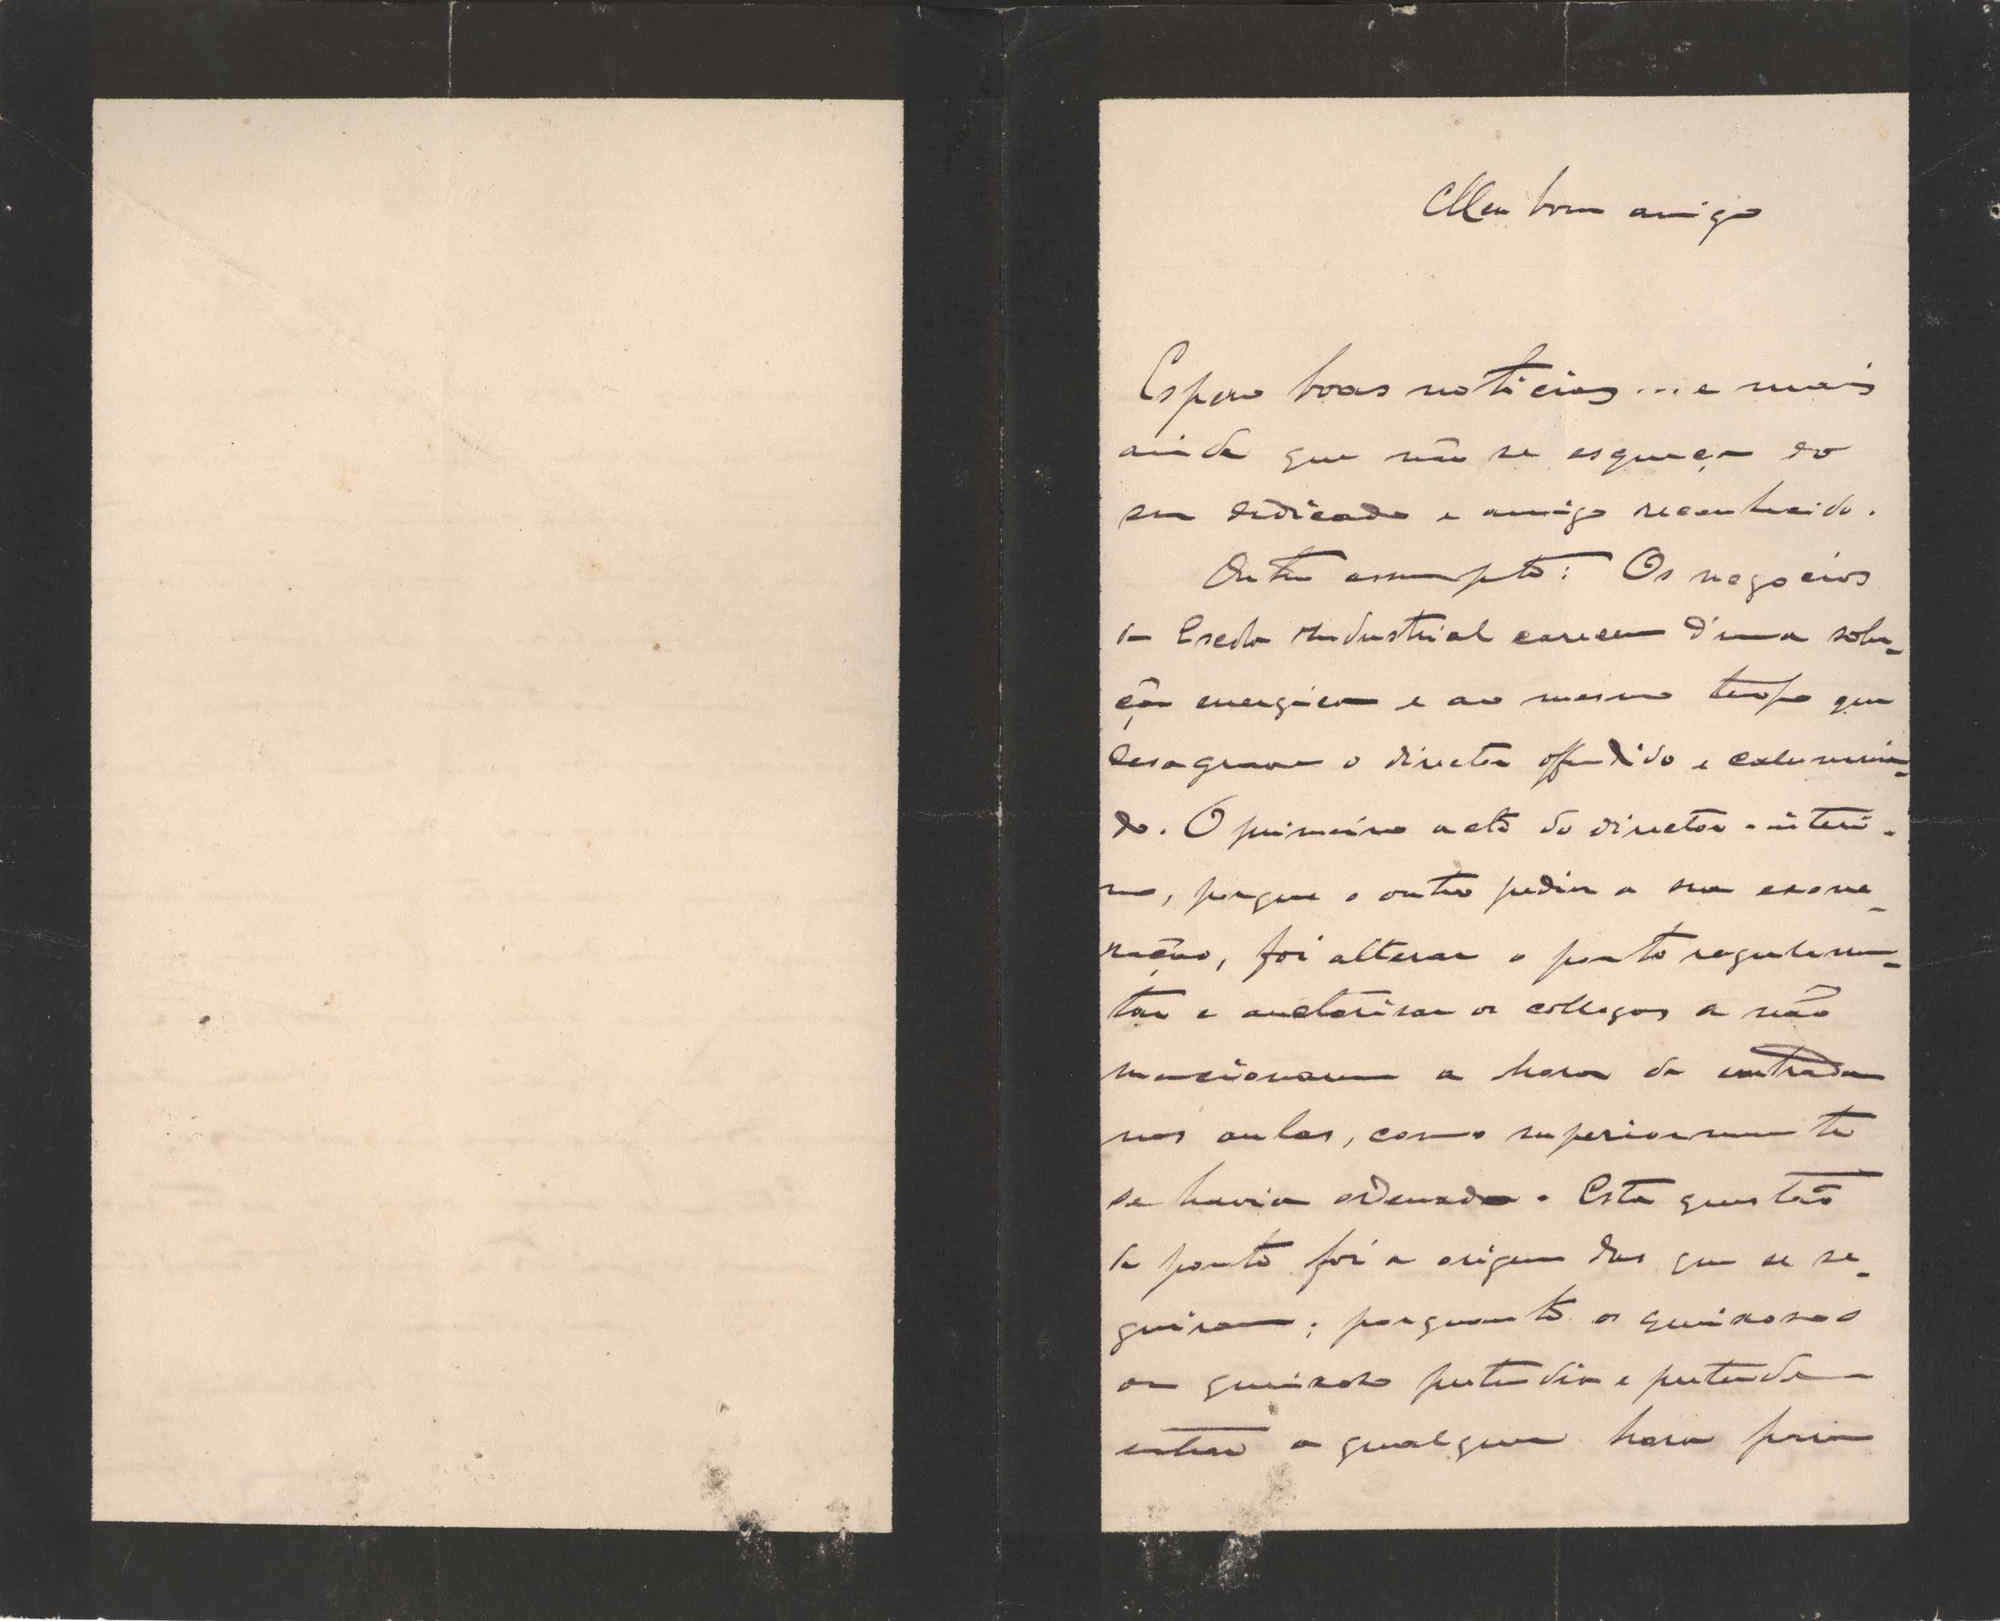 Meu bom amigo
Espero boas noticias... e mais
ainda que não se esqueça do
seu dedicado e amigo reconhecido.
Outro assumpto: Os negocios
da Escola Industrial carecem d'uma solu-
ção energica e ao mesmo tempo que
desagrave o director offendido e calumnia-
do. O primeiro acto do director-interi-
no, porque o outro pediu a sua exone-
ração, foi alterar o ponto regulamen-
tar e auctorisar os collegas a não
mencionarem a hora da entrada
nas aulas, como superiormente
se havia ordenado. Esta questão
do ponto foi a origem das que se se-
guiram; porquanto os queixosos
ou queixoso pretendia e pretende
entrar a qualquer hora para